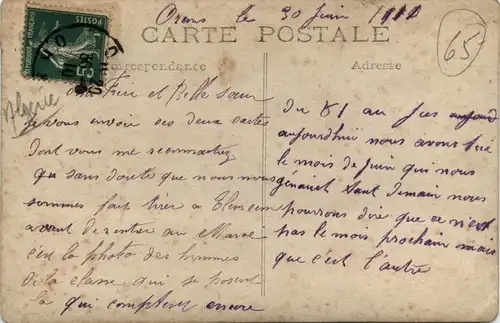 Orens le 30 Juin 1910
CARTE POSTALE
Correspondance
Adresse
65
Algérie
POSTES
5
Frère et Belle sœur
je vous envoir ces deux cartes
dont vous me reconnaitrez
que sans doute que nous nous
sommes fait tirer a Tlemcem
avant de rentrer au Maroc
c'est la photo des hommes
de la classe qui se posent
la qui comptent encore
du 81 au jus
aujourdhui nous avons fini
le mois de Juin qui nous
génairt tant demain nous
pourrons dire que ce n'est
pas le mois prochain mais
que c'est l'autre